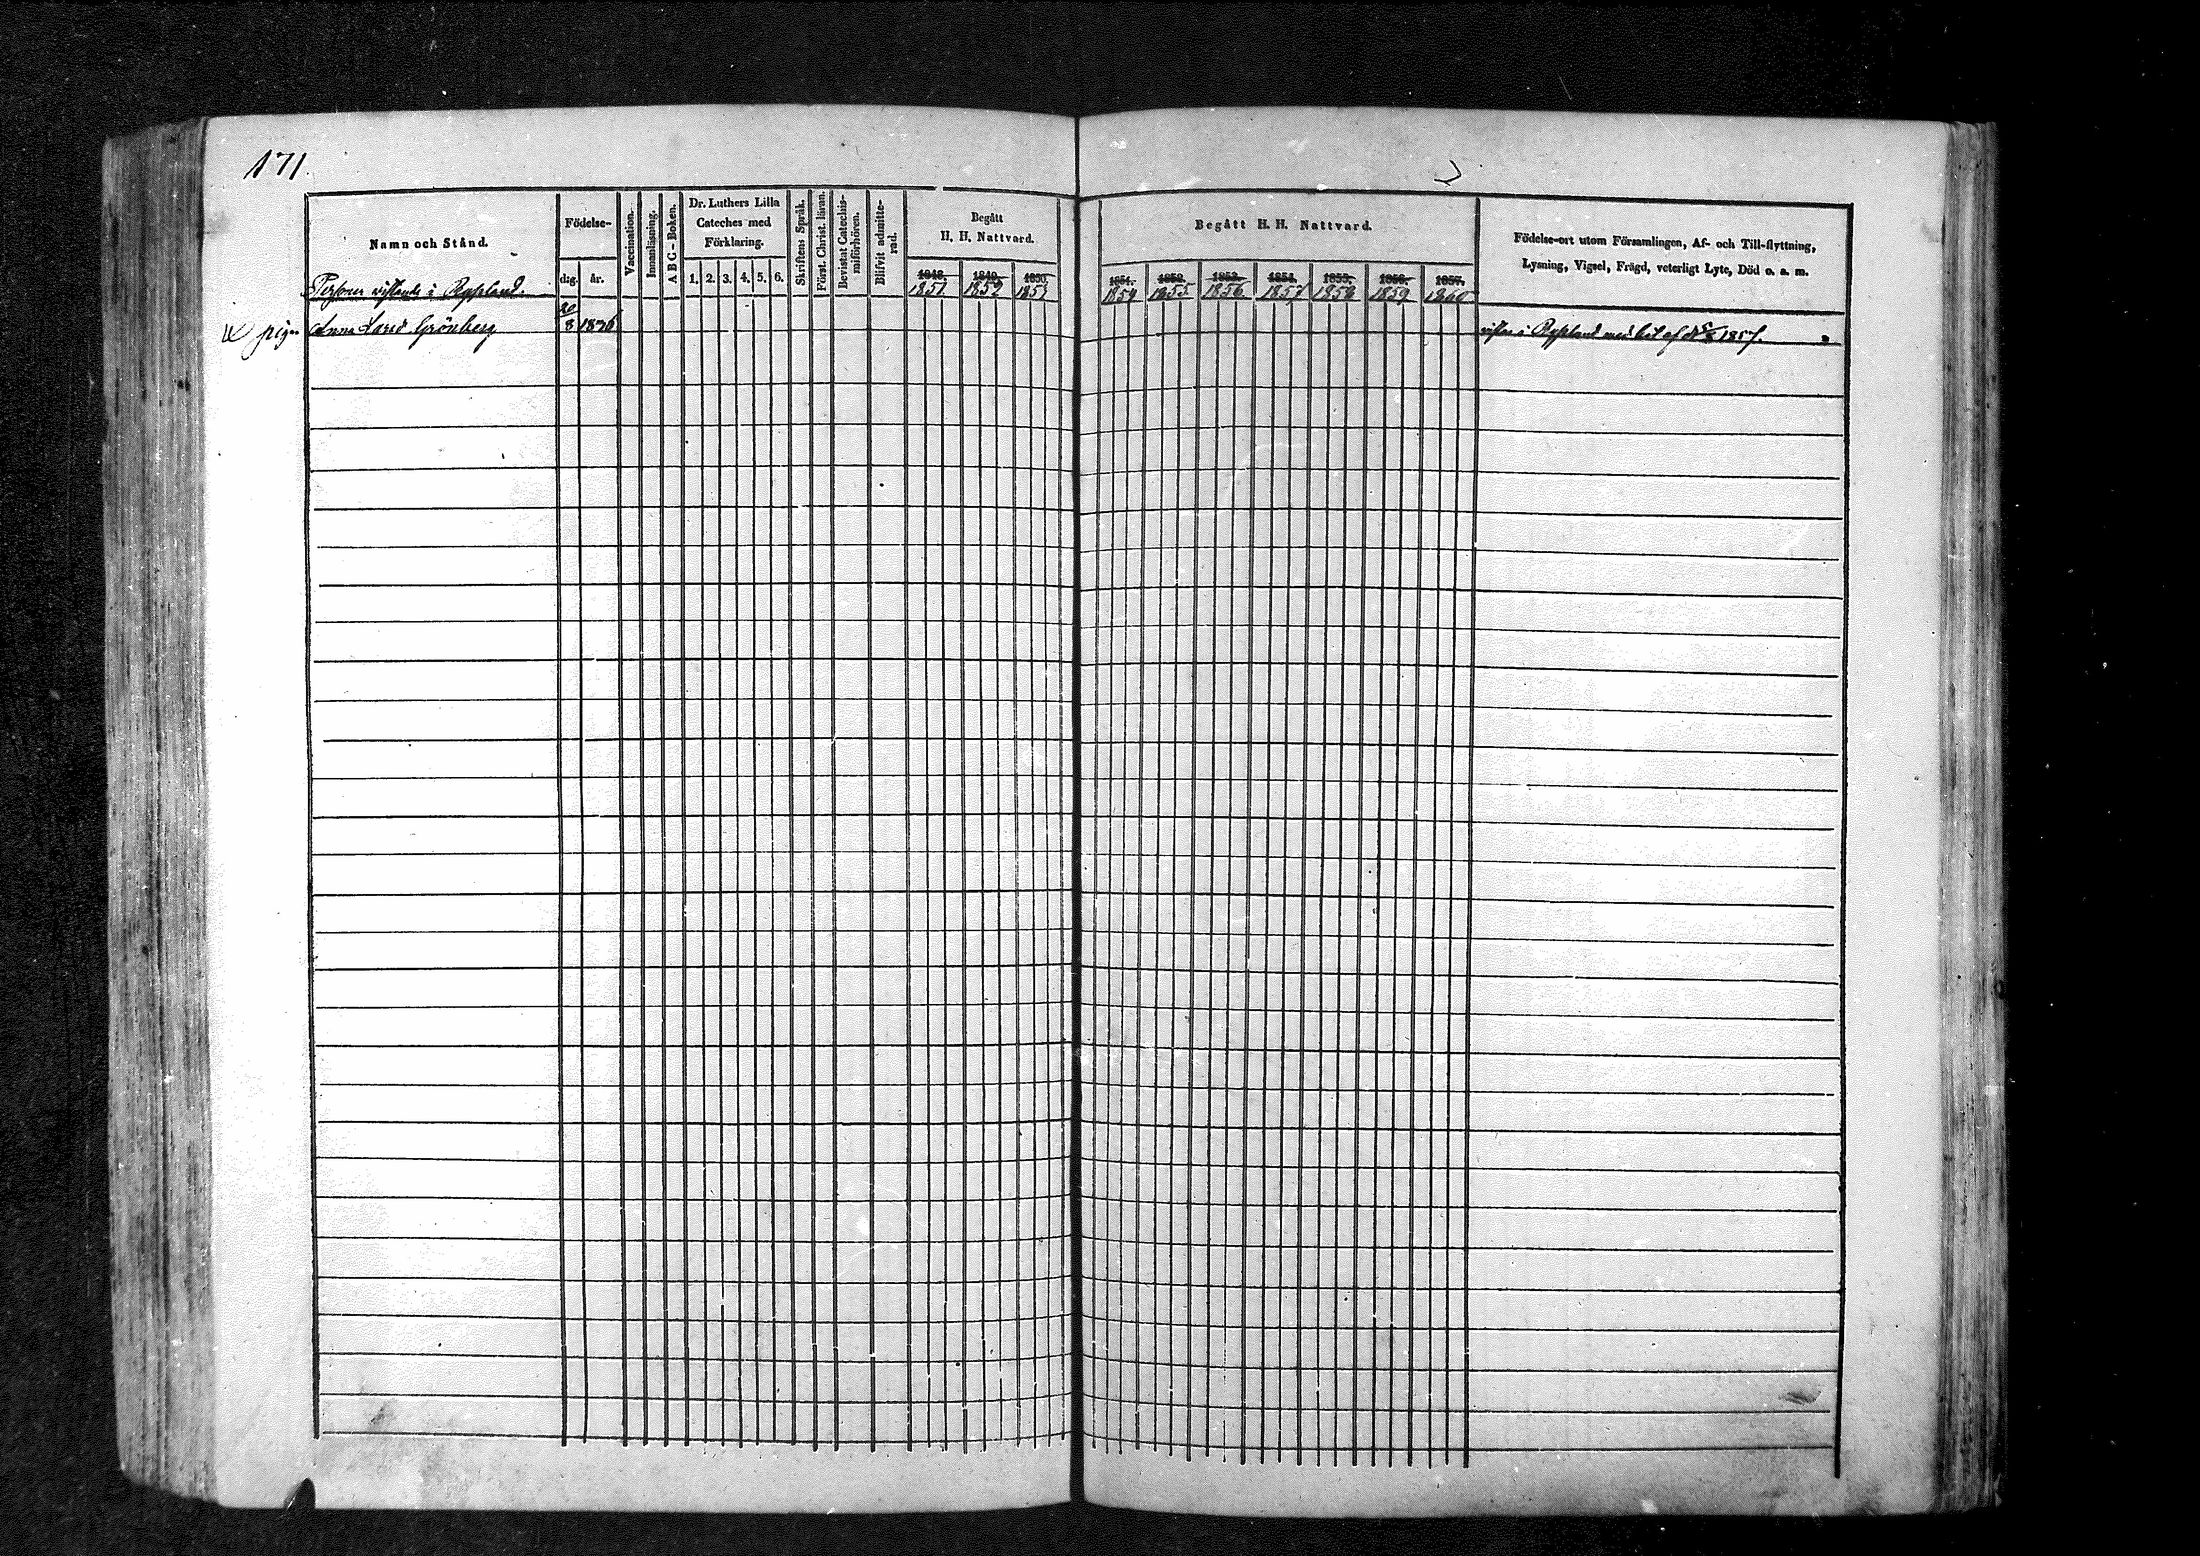 171
Namn och Stånd.
Födelse-
dig. år.
Vaccination.
Innanläsning.
A B C - Boken.
Dr. Luthers Lilla
Cateches med
Förklaring.
1. 2. 3. 4. 5. 6.
Skriftens Språk.
Först. Christ. läran.
Bevistat Catechis-
miförhören.
Blifvit admitte-
rad.
Begått
H. H. Nattvard.
1848. 1849. 1850.
1851 1852 1853
Begått H. H. Nattvard.
1851. 1852. 1853. 1854. 1855. 1856. 1857.
1854 1855 1856 1857 1858 1859 1860
Födelse-ort utom Församlingen, Af- och Till-flyttning,
Lysning, Vigsel, Frägd, veterligt Lyte, Död o. s. m.
Personer vistande i Ryssland.
pigan Anna Lovis Grönberg 20/8 1836
vistas i Ryssland med bet af d 5/8 1857.